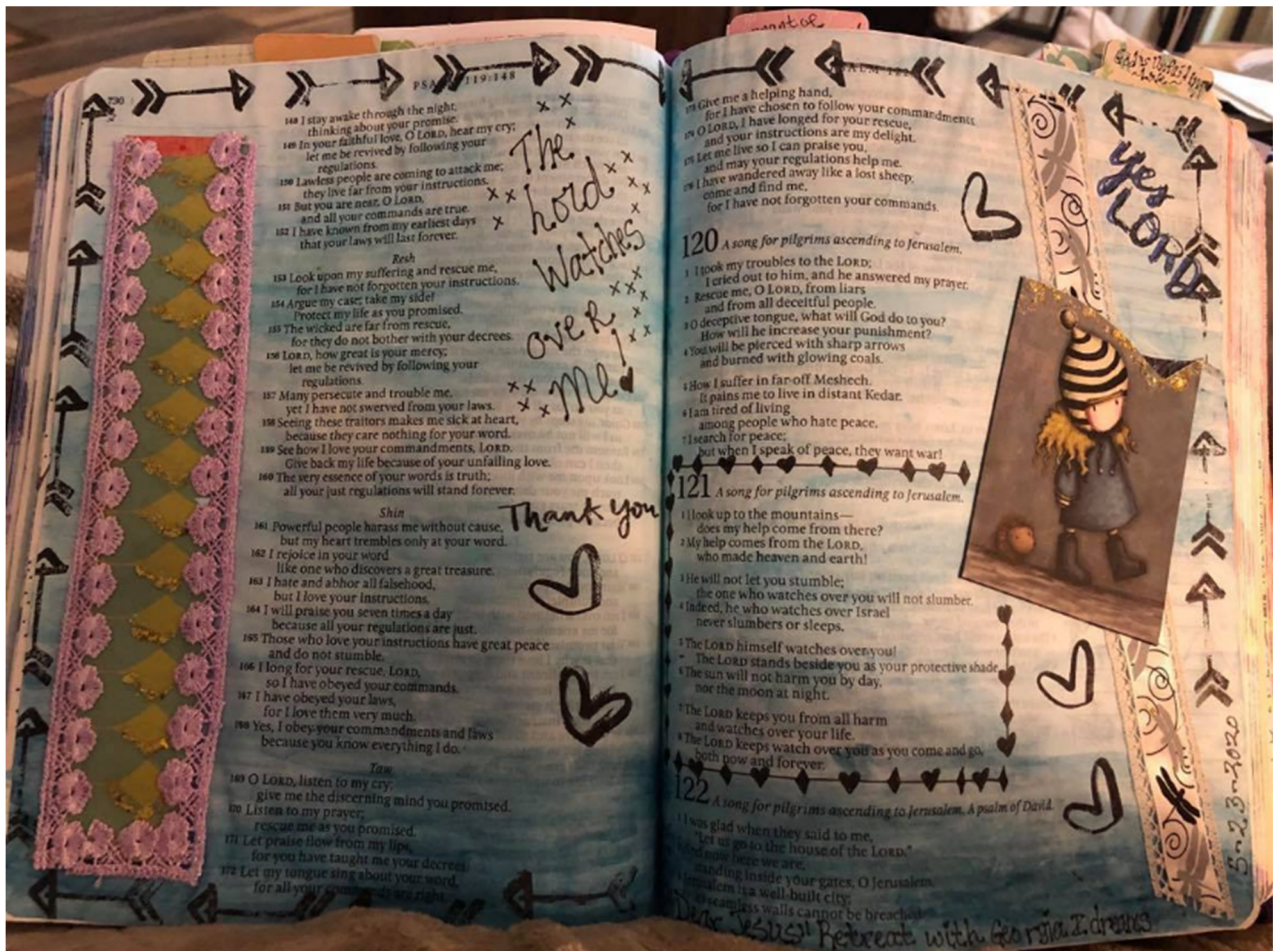 730
PSALM 119:148
148 I stay awake through the night,
thinking about your promise.
149 In your faithful love, O LORD, hear my cry;
let me be revived by following your
regulations.
150 Lawless people are coming to attack me;
they live far from your instructions.
151 But you are near, O LORD,
and all your commands are true.
152 I have known from my earliest days
that your laws will last forever.
Resh
153 Look upon my suffering and rescue me,
for I have not forgotten your instructions.
154 Argue my case; take my side!
Protect my life as you promised.
155 The wicked are far from rescue,
for they do not bother with your decrees.
156 LORD, how great is your mercy;
let me be revived by following your
regulations.
157 Many persecute and trouble me,
yet I have not swerved from your laws.
158 Seeing these traitors makes me sick at heart,
because they care nothing for your word.
159 See how I love your commandments, LORD.
Give back my life because of your unfailing love.
160 The very essence of your words is truth;
all your just regulations will stand forever.
Shin
161 Powerful people harass me without cause,
but my heart trembles only at your word.
162 I rejoice in your word
like one who discovers a great treasure.
163 I hate and abhor all falsehood,
but I love your instructions.
164 I will praise you seven times a day
because all your regulations are just.
165 Those who love your instructions have great peace
and do not stumble.
166 I long for your rescue, LORD,
so I have obeyed your commands.
167 I have obeyed your laws,
for I love them very much.
168 Yes, I obey your commandments and laws
because you know everything I do.
Taw
169 O LORD, listen to my cry;
give me the discerning mind you promised.
170 Listen to my prayer;
rescue me as you promised.
171 Let praise flow from my lips,
for you have taught me your decrees.
172 Let my tongue sing about your word,
for all your commands are right.
The
Lord
Watches
over
Me!
Thank You
173 Give me a helping hand,
for I have chosen to follow your commandments.
174 O LORD, I have longed for your rescue,
and your instructions are my delight.
175 Let me live so I can praise you,
and may your regulations help me.
176 I have wandered away like a lost sheep;
come and find me,
for I have not forgotten your commands.
120 A song for pilgrims ascending to Jerusalem.
1 I took my troubles to the LORD;
I cried out to him, and he answered my prayer.
2 Rescue me, O LORD, from liars
and from all deceitful people.
3 O deceptive tongue, what will God do to you?
How will he increase your punishment?
4 You will be pierced with sharp arrows
and burned with glowing coals.
5 How I suffer in far-off Meshech.
It pains me to live in distant Kedar.
6 I am tired of living
among people who hate peace.
7 I search for peace;
but when I speak of peace, they want war!
121 A song for pilgrims ascending to Jerusalem.
1 I look up to the mountains—
does my help come from there?
2 My help comes from the LORD,
who made heaven and earth!
3 He will not let you stumble;
the one who watches over you will not slumber.
4 Indeed, he who watches over Israel
never slumbers or sleeps.
5 The LORD himself watches over you!
The LORD stands beside you as your protective shade.
6 The sun will not harm you by day,
nor the moon at night.
7 The LORD keeps you from all harm
and watches over your life.
8 The LORD keeps watch over you as you come and go,
both now and forever.
122 A song for pilgrims ascending to Jerusalem. A psalm of David.
1 I was glad when they said to me,
"Let us go to the house of the LORD."
2 And now here we are,
standing inside your gates, O Jerusalem.
3 Jerusalem is a well-built city;
its seamless walls cannot be breached.
yes
LORD
5~23~2020
"Dear Jesus" Retreat with Georgia